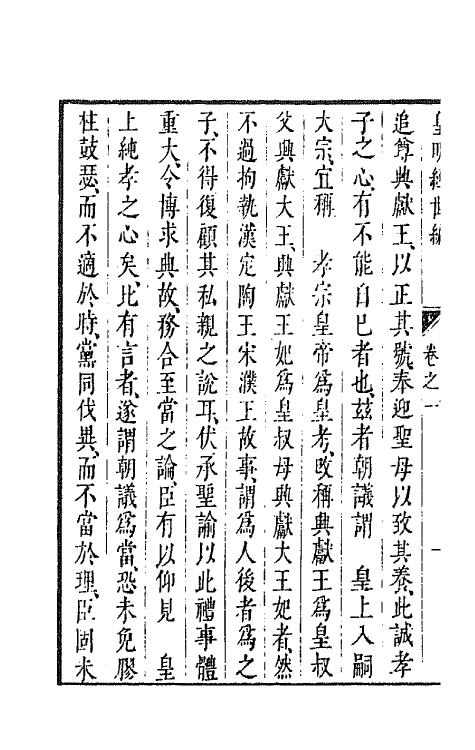 皇明經世編　卷之一　一
追尊興獻王以正其號奉迎聖母以致其養此誠孝
子之心有不能自已者也玆者朝議謂　皇上入嗣
大宗宜稱　孝宗皇帝爲皇考改稱興獻王爲皇叔
父興獻大王興獻王妃爲皇叔母興獻大王妃者然
不過拘執漢定陶王宋濮王故事謂爲人後者爲之
子不得復顧其私親之說耳伏承聖諭以此禮事體
重大令博求典故務合至當之論臣有以仰見　皇
上純孝之心矣比有言者遂謂朝議爲當恐未免膠
柱鼓瑟而不適於時黨同伐異而不當於理臣固未